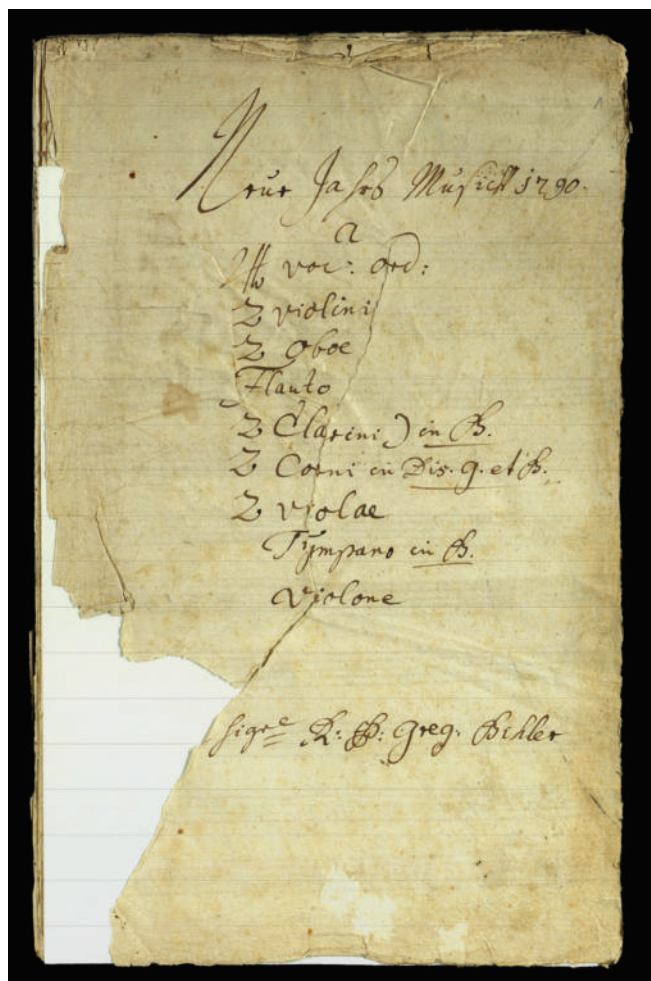 Neue Jahrs Musick 1790.
a
voc: ord:
2 violini
2 Oboe
Flauto
2 Clarini) in B.
2 Corni in Dis. G. et B.
2 violae
Tympano in B.
Violone
Sigre R: P: Greg: Bihler